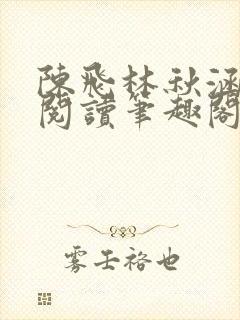 陳飛林秋涵
閱讀筆趣閣
雾壬裕也